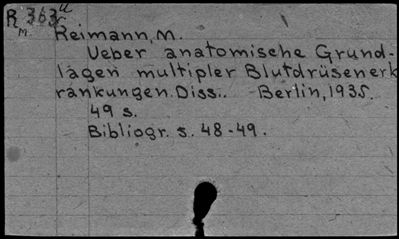 R 363 u
m. r
Reimann, M.
Ueber anatomische Grund-
lagen multipler Blutdrüsenerk
rankungen. Diss.. - Berlin, 1935.
49 s.
Bibliogr. s. 48-49.